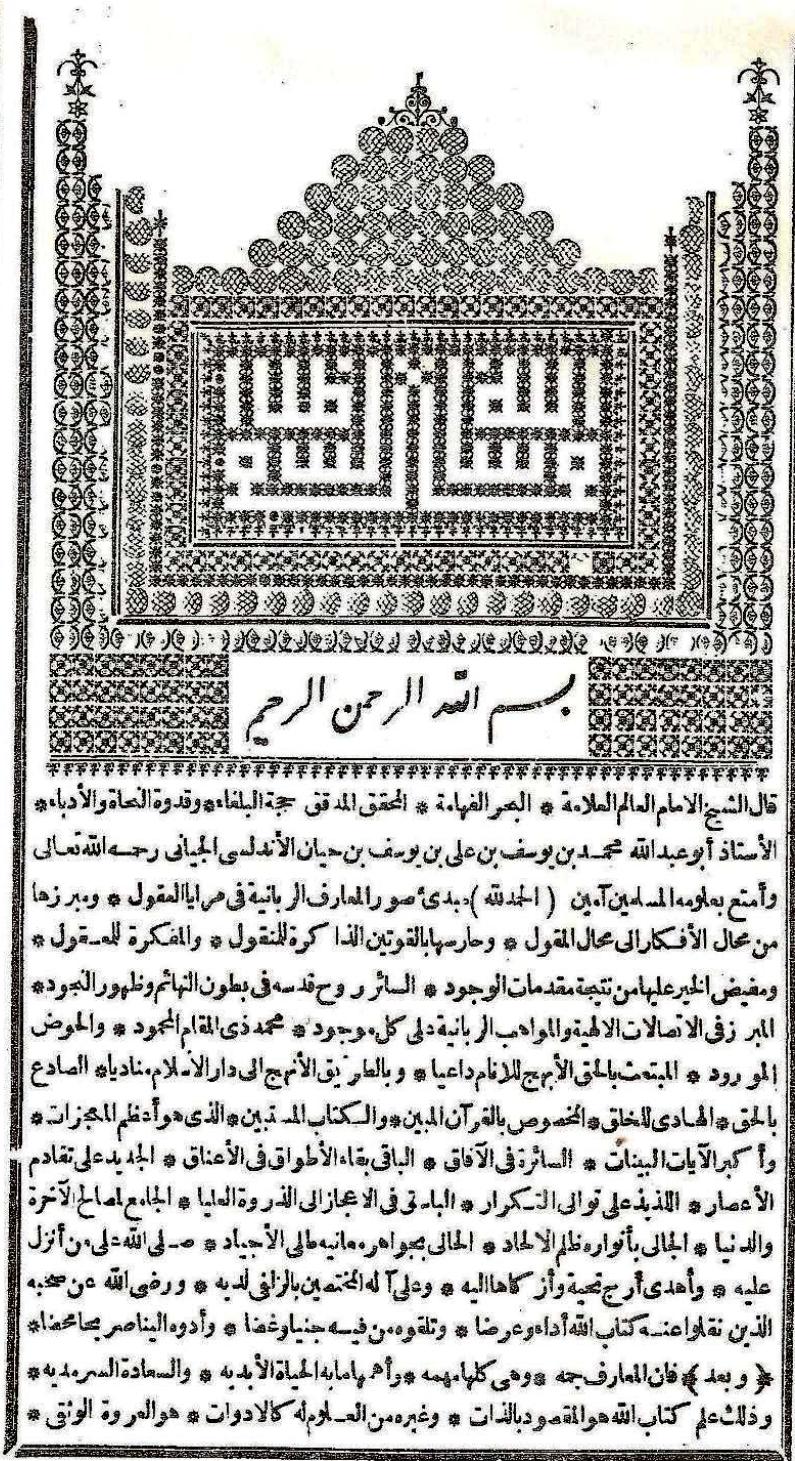 بسم الله الرحمن الرحيم
قال الشيخ الامام العالم العلامة * البحر الفهامة * المحقق المدقق حجة البلغاء * وقدوة النحاة والأدباء *
الأستاذ أبو عبد الله محمد بن يوسف بن على بن يوسف بن حيان الأندلسى الجيانى رحمه الله تعالى
وأمتع بعلومه المسلمين آمين ( الحمد لله ) مبدئ صور المعارف الربانية فى مرايا العقول * ومبرزها
من محال الأفكار الى محال المقول * وحارسها بالقوتين الذاكرة للمنقول * والمفكرة للمعقول *
ومفيض الخير عليها من نتيجة مقدمات الوجود * السائر روح قدسه فى بطون التهائم وظهور النجود *
المبرز فى الاتصالات الالهية والمواهب الربانية على كل موجود * محمد ذى المقام المحمود * والحوض
المورود * المبتعث بالحق الأبهج للانام داعيا * وبالطريق الأنهج الى دار الاسلام مناديا * الصادع
بالحق * الهادى للخلق * المخصوص بالقرآن المبين * والكتاب المستبين * الذى هو أعظم المعجزات *
وأكبر الآيات البينات * السائرة فى الآفاق * الباقى بقاء الأطواق فى الأعناق * الجديد على تقادم
الأعصار * اللذيذ على توالى التكرار * الباسق فى الاعجاز الى الذروة العليا * الجامع لمصالح الآخرة
والدنيا * الجالى بأنواره ظلم الالحاد * الحالى بجواهر معانيه طلى الأجياد * صلى الله على من أنزل
عليه * وأهدى أرج تحية وأزكاها اليه * وعلى آله المختصين بالزلفى لديه * ورضى الله عن صحبه
الذين نقلوا عنه كتاب الله أداء وعرضا * وتلقوه من فيه جنيا وغضا * وأدوه الينا صريحا محضا *
﴿ وبعد ﴾ فان المعارف جمه * وهى كلها مهمه * وأهمها ما به الحياة الأبديه * والسعادة السرمديه *
وذلك علم كتاب الله هو المقصود بالذات * وغيره من العلوم له كالادوات * هو العروة الوثقى *